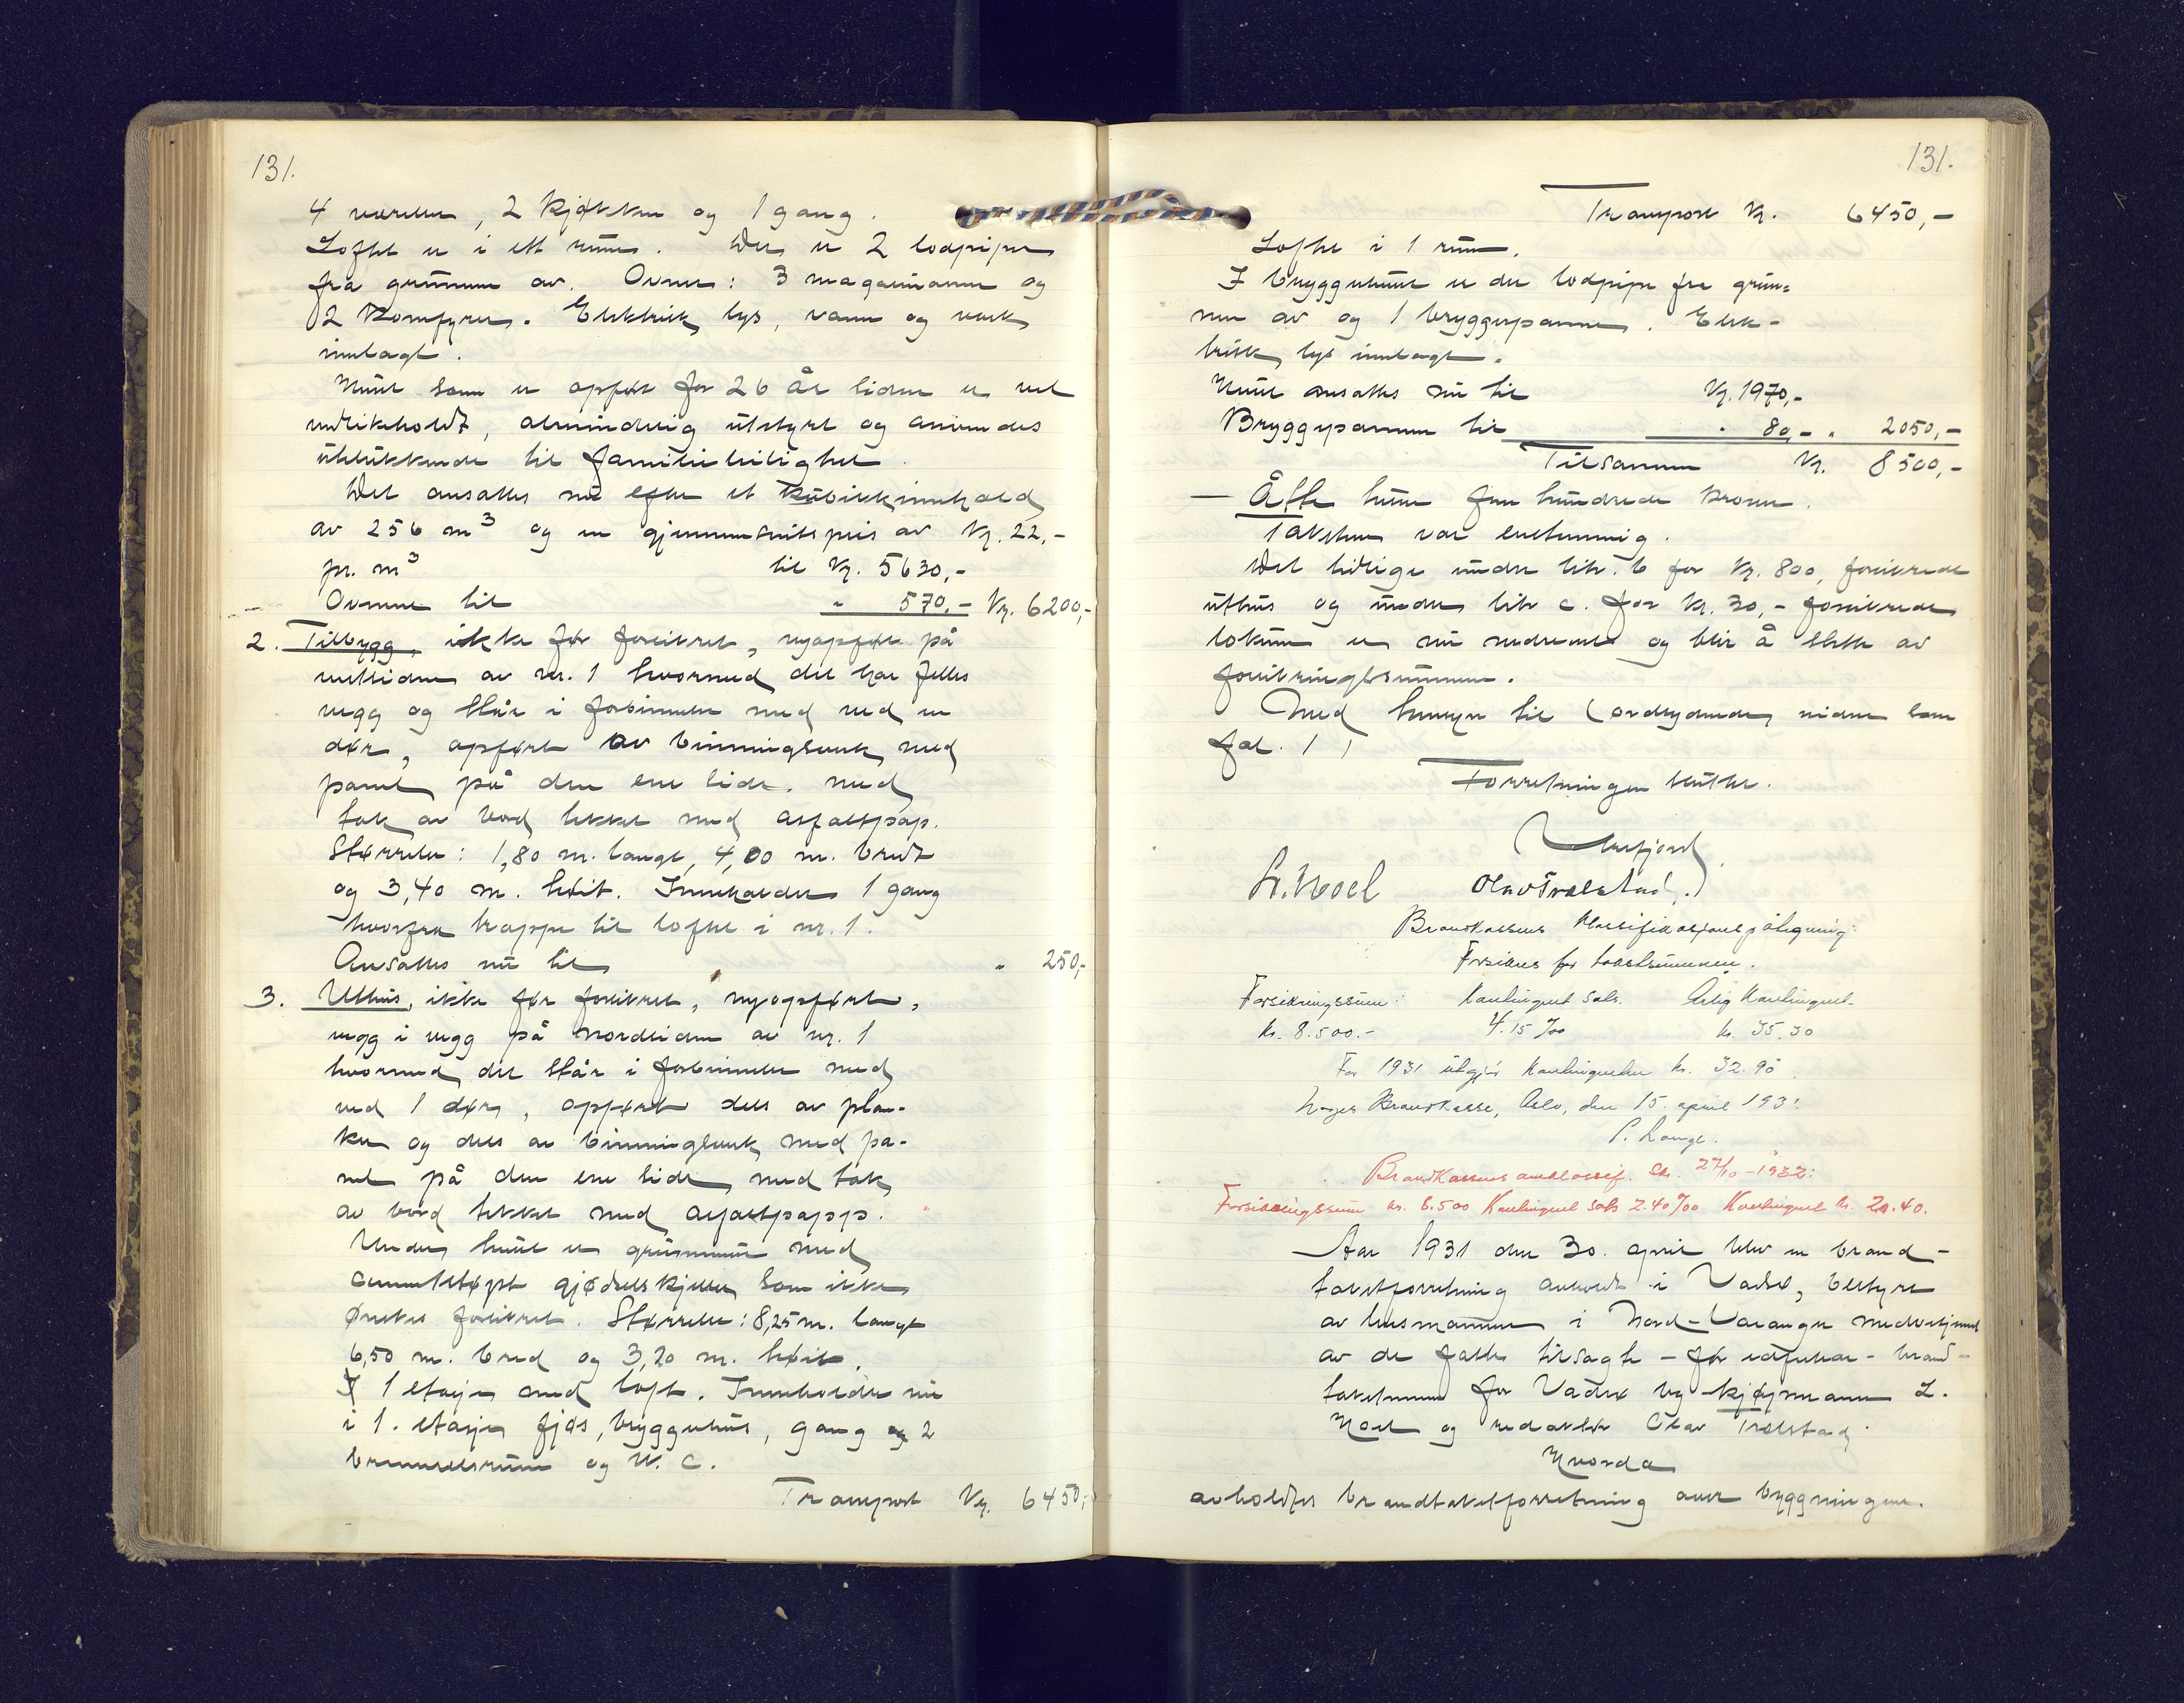 131.
4 værelser, 2 kjøkken og 1 gang.
Loftet er i ett rum. Der er 2 lodpiper
fra grunnen av. Ovner: 3 magasinovner og
2 komfyrer. Elektrisk lys, vann og vask
innlagt.
Huset som er opført for 26 år siden er vel
vedlikeholdt, almindelig utstyrt og anvendes
utelukkende til familieleilighet.
Det ansattes nu efter et kubikkinnhold
av 256 m³ og en gjennemsnitspris av kr. 22,-
pr. m³ til kr. 5630,-
Ovnene til " 570,- kr. 6200,-
2. Tilbygg, ikke før forsikret, nyopført på
vestsiden av nr. 1 hvormed det har felles
vegg og står i forbinnelse med ved en
dør, opført av binningsverk med
panel på den ene side, med
tak av bord tekket med asfaltpap.
Størrelse: 1,80 m. langt, 4,00 m. bredt
og 3,40 m. høit. Inneholder 1 gang
hvorfra trappe til loftet i nr. 1.
Ansattes nu til " 250,-
3. Uthus, ikke før forsikret, nyopført,
vegg i vegg på nordsiden av nr. 1
hvormed det står i forbinnelse med
ved 1 dør, opført dels av plan-
ker og dels av binningsverk med pa-
nel på den ene side, med tak
av bord tekket med asfaltpapp.
Under huset er grunnmur med
cementstøpt gjødselskjeller som ikke
ønskes forsikret. Størrelse: 8,25 m. langt
6,50 m. bred og 3,20 m. høit.
I 1 etasje med loft. Inneholder nu
i 1. etasje fjøs, bryggehus, gang og 2
brenselsrum og W. C.
Transport kr. 6450,-
131.
Transport kr. 6450,-
Loftet i 1 rum.
I bryggehuset er der lodpipe fra grun-
nen av og 1 bryggepanne. Elek-
trisk lys innlagt.
Huset ansattes nu til kr. 1970,-
Bryggepannen til " 80,- " 2050,-
Tilsammen kr. 8500,-
— Åtte tusen fem hundrede kroner.
Taksten var enstemmig.
Det tidligere under litr. b for kr. 800, forsikrede
uthus og under litr c. for kr. 30,- forsikrede
lokum er nu nedrevet og blir å slette av
forsikringssummen.
Med hensyn til (ordlydende, videre som
fol. 1)
Forretningen sluttet.
L. Noel Olav Trælstad.
Brandkassens klassifikasjonspåtegning:
Forsikres for takstsummen.
Forsikringssum: Kontingent sats. Årlig Kontingent.
kr. 8.500.- 4.15 ‰ kr. 35.30
For 1931 utgjør kontingenten kr. 32.90.
Norges Brandkasse, Oslo, den 15. april 1931.
P. Lange.
Brandkassens omklassif. Sk. 27/10 - 1932:
Forsikringssum kr. 8.500 Kontingent sats 2.40 ‰ Kontingent kr. 20.40.
Aar 1931 den 30. april blev en brand-
takstforretning avholdt i Vadsø, bestyrt
av lensmannen i Nord-Varanger
av de faste tilsagte - før edfestede - brand-
takstmenn for Vadsø by kjøpmann L.
Noel og redaktør Olav Trælstad.
Hvorda
avholdtes brandtakstforretning over bygningene.